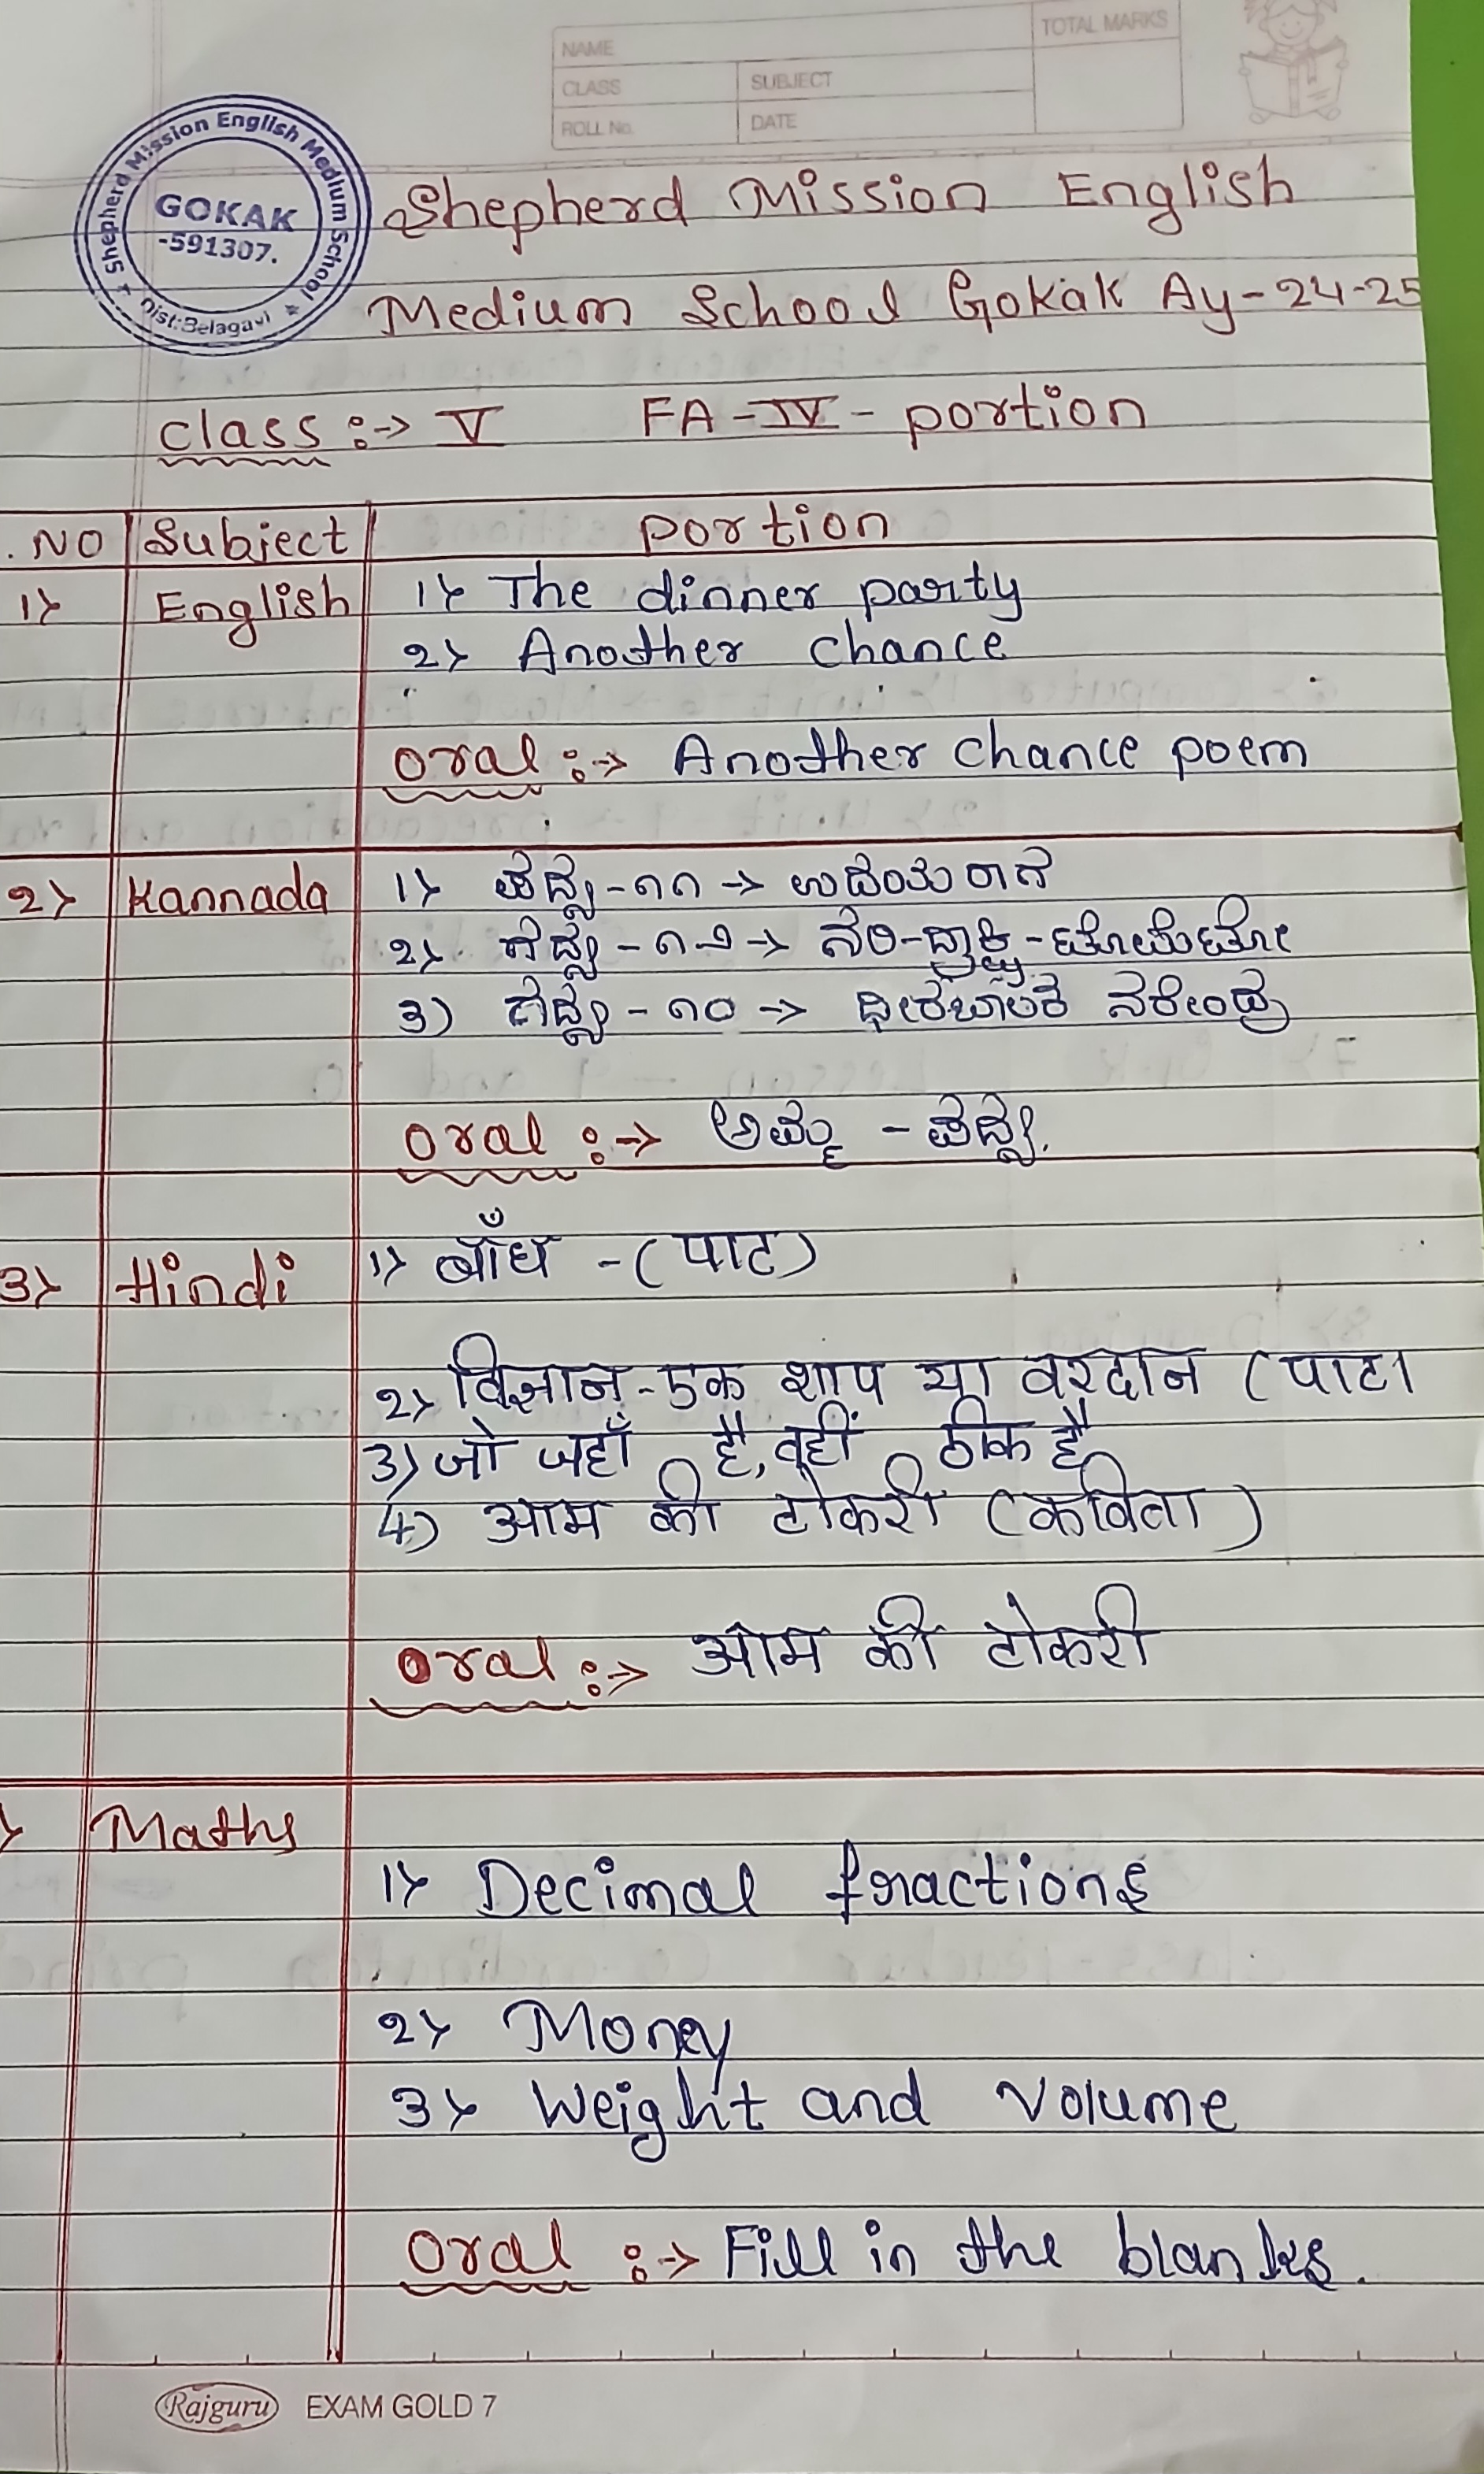 NAME
TOTAL MARKS
CLASS SUBJECT
ROLL No. DATE
Shepherd Mission English Medium School
GOKAK
-591307.
Dist:Belagavi
Shepherd Mission English
Medium School Gokak Ay-24-25
class :-> V FA-IV-portion
. NO Subject portion
1> English 1> The dinner party
2> Another chance
oral :-> Another chance poem
2> Kannada 1> ಪದ್ಯ-೧೧ -> ಉದಯರಾಗ
2> -೧೨ -> ನರಿ-ದ್ರಾಕ್ಷಿ-
3) -೧೦ -> ನರೇಂದ್ರ
oral :-> ಅಮ್ಮ - ಪದ್ಯ.
3> Hindi 1> बाँध -(पाट)
2> विज्ञान-एक शाप या वरदान (पाट)
3) जो जहाँ है, वहीं ठीक है
4) आम की टोकरी (कविता)
oral :-> आम की टोकरी
Maths
1> Decimal fractions
2> Money
3> Weight and volume
oral :-> Fill in the blanks.
Rajguru EXAM GOLD 7